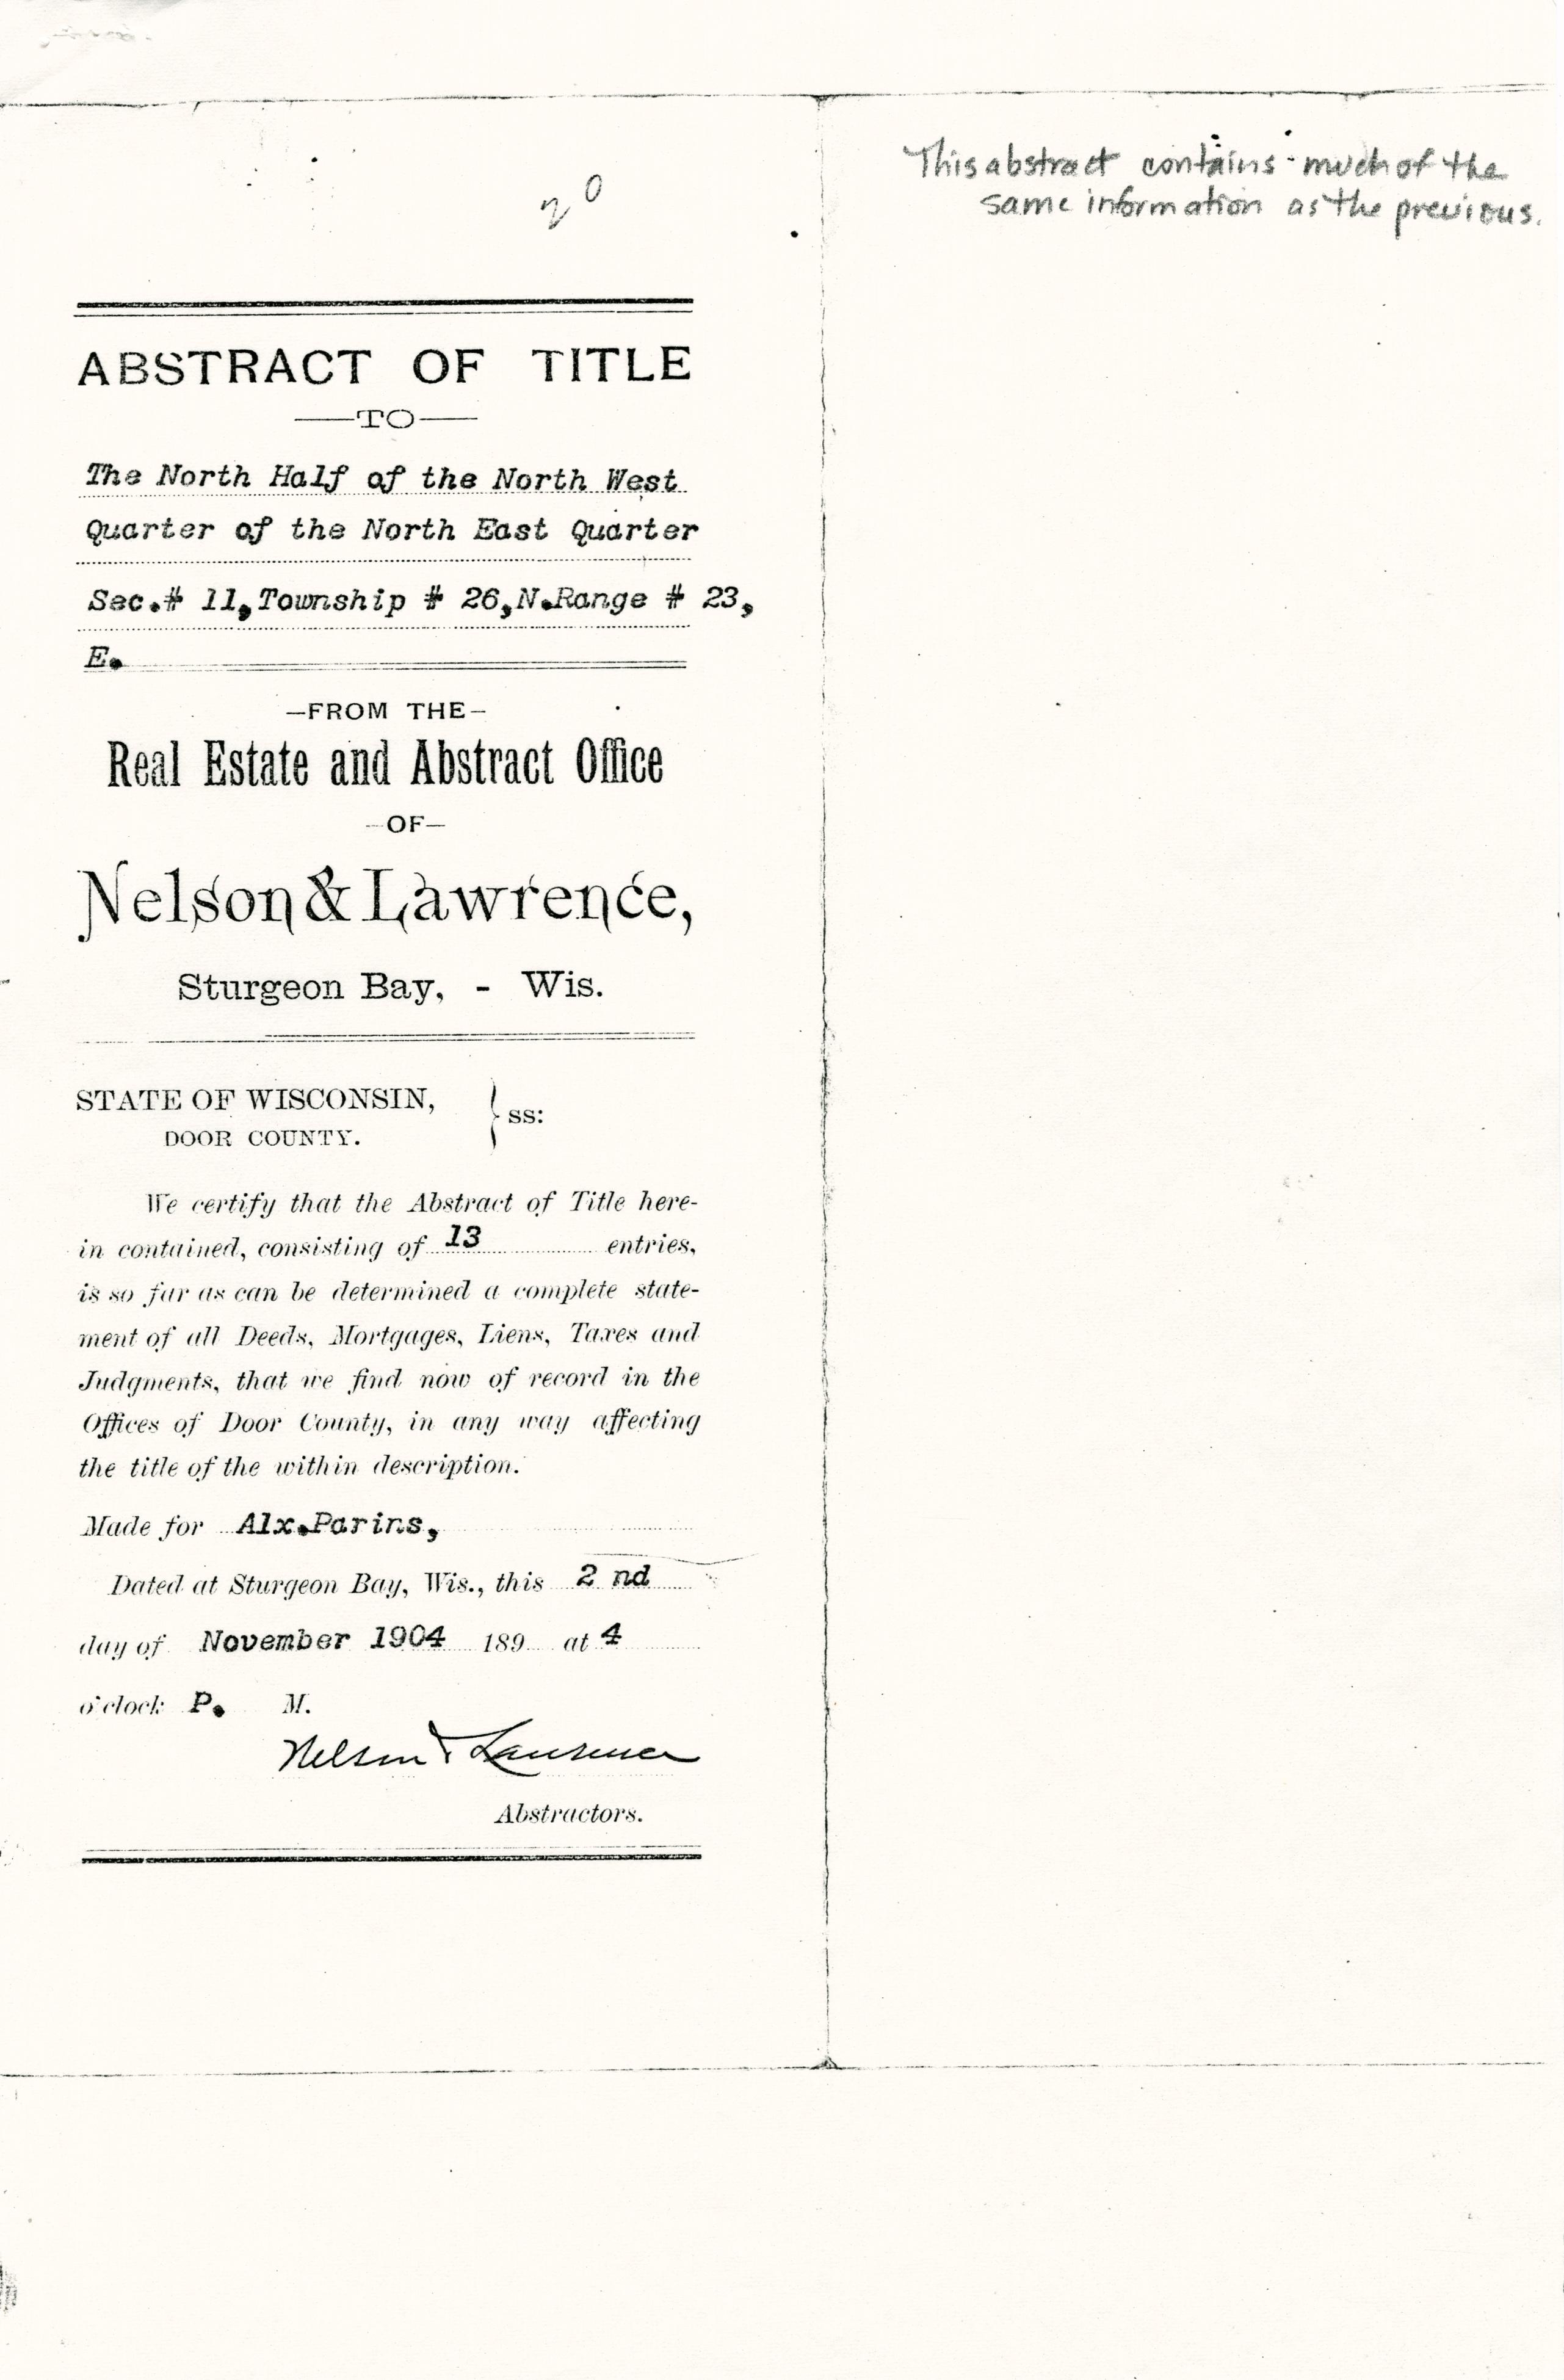 20
ABSTRACT OF TITLE
—TO—
The North Half of the North West
Quarter of the North East Quarter
Sec.# 11,Township # 26,N.Range # 23,
E.
—FROM THE—
Real Estate and Abstract Office
—OF—
Nelson & Lawrence,
Sturgeon Bay, - Wis.
STATE OF WISCONSIN, } ss:
DOOR COUNTY.
We certify that the Abstract of Title here-
in contained, consisting of 13 entries,
is so far as can be determined a complete state-
ment of all Deeds, Mortgages, Liens, Taxes and
Judgments, that we find now of record in the
Offices of Door County, in any way affecting
the title of the within description.
Made for Alx.Parins,
Dated at Sturgeon Bay, Wis., this 2 nd
day of November 1904 189 at 4
o'clock P. M.
Nelson & Lawrence
Abstractors.
This abstract contains much of the
same information as the previous.